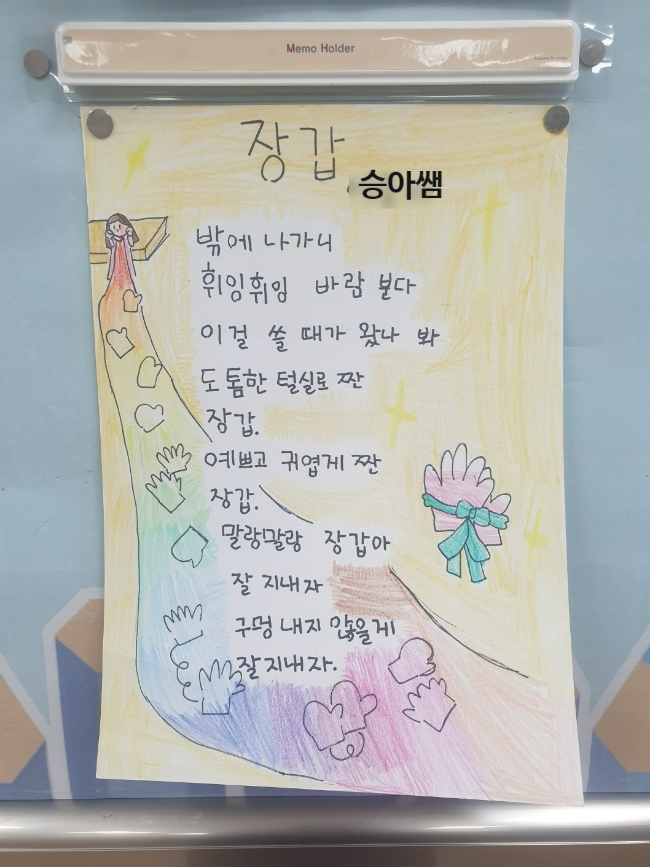 Memo Holder
장갑
승아쌤
밖에 나가니
휘잉휘잉 바람 분다
이걸 쓸 때가 왔나 봐
도톰한 털실로 짠
장갑.
예쁘고 귀엽게 짠
장갑.
말랑말랑 장갑아
잘 지내자
구멍 내지 않을게
잘 지내자.